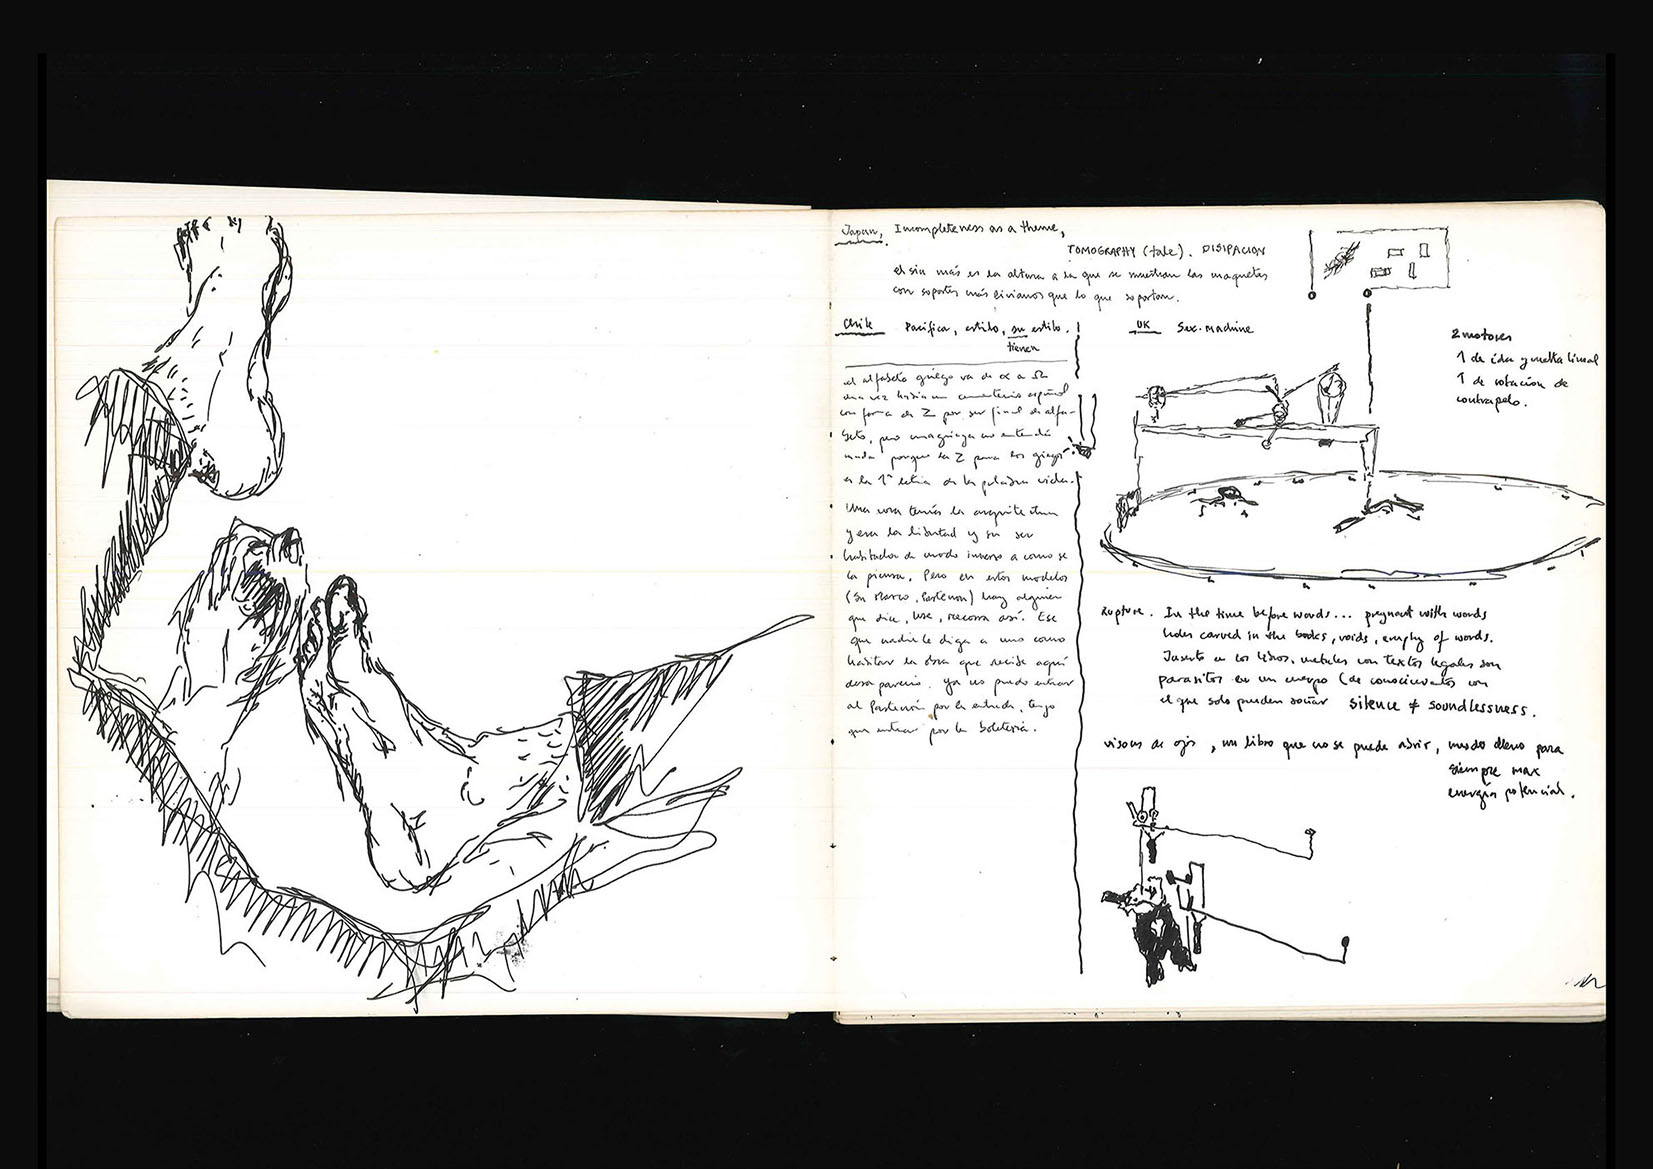 Japan, Incompleteness as a theme,
TOMOGRAPHY (tale). DISIPACION
el sin más es la altura a la que se muestran las maquetas
con soportes más livianos que lo que soportan.
Chile Pacífica, estilo, su estilo.
tienen
el alfabeto griego va de α a Ω
una vez había un cementerio español
con forma de Z por ser final de alfa-
beto, pero una griega no entendía
nada porque la Z para los griegos
es la 1ª letra de la palabra vida.
Una cosa tenía la arquitectura
y era la libertad y su ser
habitada de modo inverso a como se
la piensa. Pero en estos modelos
(Sn Marco, Partenon) hay alguien
que dice, use, recorra así. Ese
que nadie le diga a uno como
habitar la obra que recibe aquí
desaparecio. ya no puedo entrar
al Partenón por la entrada, tengo
que entrar por la boletería.
UK Sex-machine
2 motores
1 de ida y vuelta lineal
1 de rotación de
contrapelo.
Rupture. In the time before words... pregnant with words
holes carved in the books, voids, empty of words.
Inserto en los libros, metales con textos legales son
parasitos en un cuerpo (de conocimientos con
el que solo pueden soñar silence ≠ soundlessness.
visous de ojo, un libro que no se puede abrir, mudo lleno para
siempre max
energía potencial.